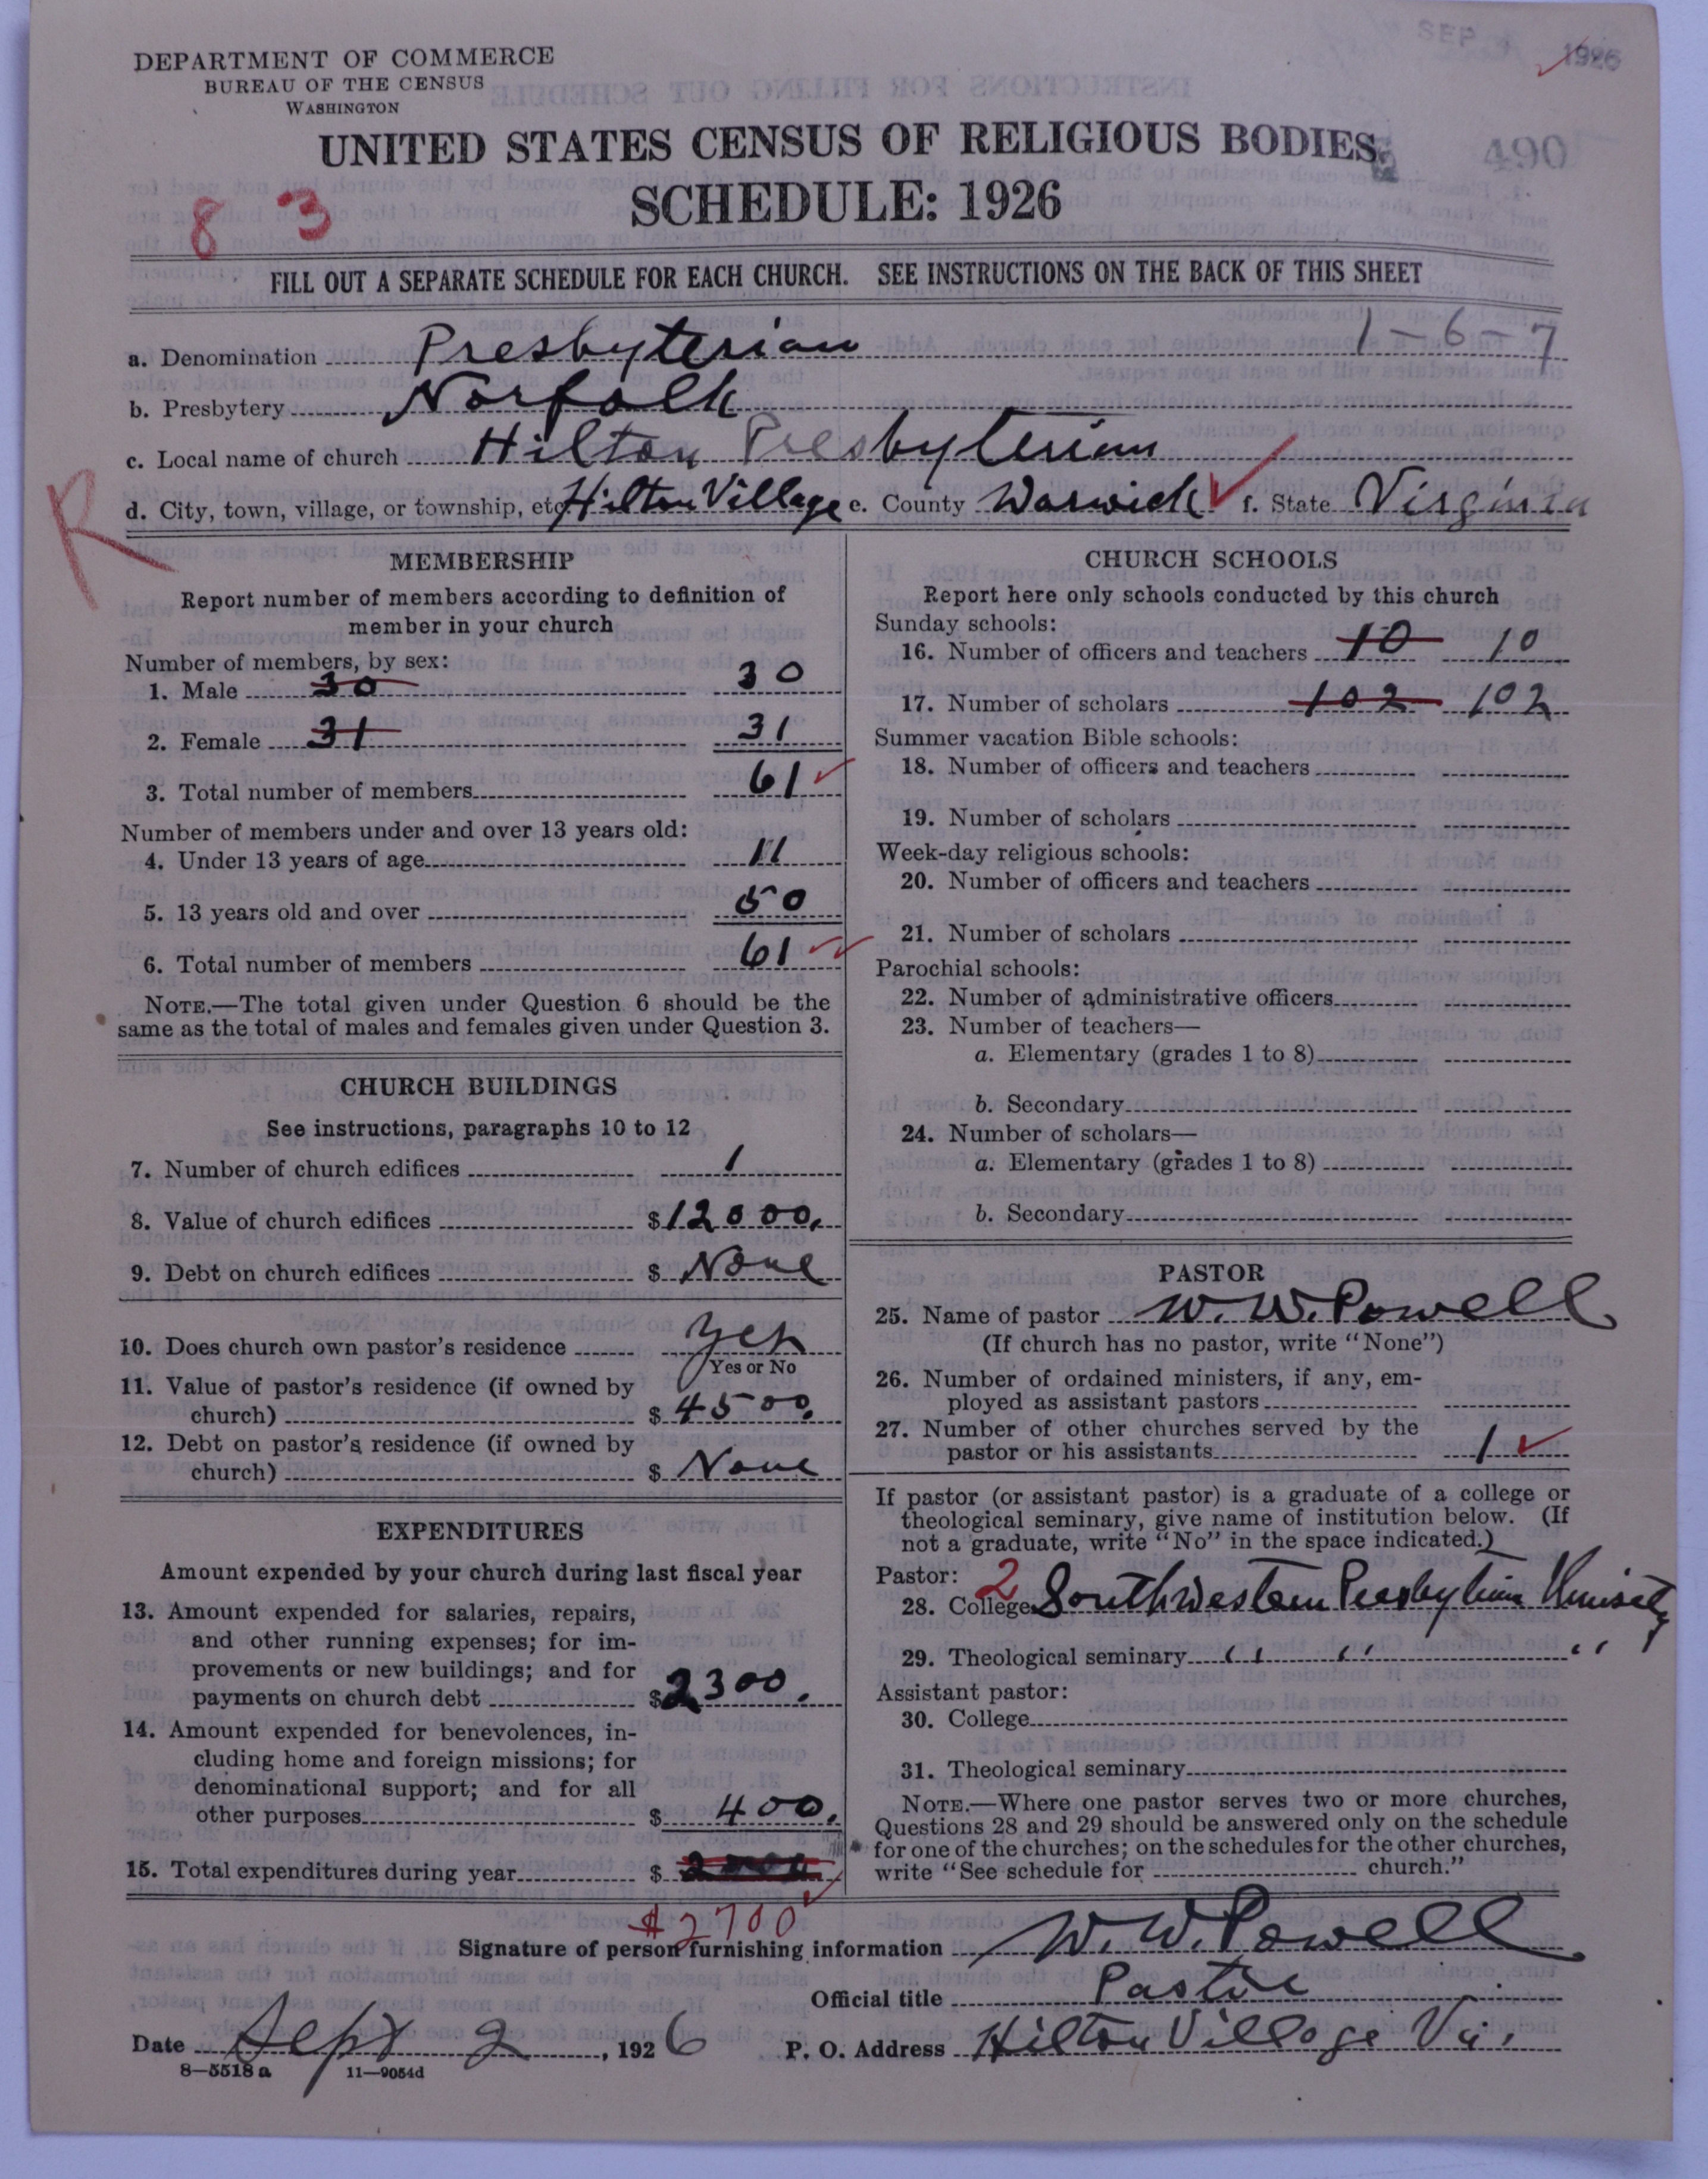 SEP 1926
DEPARTMENT OF COMMERCE
BUREAU OF THE CENSUS
WASHINGTON
UNITED STATES CENSUS OF RELIGIOUS BODIES
490
SCHEDULE: 1926
8 3
FILL OUT A SEPARATE SCHEDULE FOR EACH CHURCH. SEE INSTRUCTIONS ON THE BACK OF THIS SHEET
1-6-7
a. Denomination Presbyterian
b. Presbytery Norfolk
c. Local name of church Hilton Presbyterian
R
d. City, town, village, or township, etc Hilton Village e. County Warwick f. State Virginia
MEMBERSHIP
Report number of members according to definition of
member in your church
Number of members, by sex:
1. Male 30 30
2. Female 31 31
3. Total number of members 61
Number of members under and over 13 years old:
4. Under 13 years of age 11
5. 13 years old and over 50
6. Total number of members 61
NOTE.—The total given under Question 6 should be the
same as the total of males and females given under Question 3.
CHURCH BUILDINGS
See instructions, paragraphs 10 to 12
7. Number of church edifices 1
8. Value of church edifices $12000.
9. Debt on church edifices $ None
10. Does church own pastor's residence Yes
Yes or No
11. Value of pastor's residence (if owned by
church) $4500.
12. Debt on pastor's residence (if owned by
church) $ None
EXPENDITURES
Amount expended by your church during last fiscal year
13. Amount expended for salaries, repairs,
and other running expenses; for im-
provements or new buildings; and for
payments on church debt $2300.
14. Amount expended for benevolences, in-
cluding home and foreign missions; for
denominational support; and for all
other purposes $ 400.
15. Total expenditures during year $
$2700
CHURCH SCHOOLS
Report here only schools conducted by this church
Sunday schools:
16. Number of officers and teachers 10 10
17. Number of scholars 102 102
Summer vacation Bible schools:
18. Number of officers and teachers
19. Number of scholars
Week-day religious schools:
20. Number of officers and teachers
21. Number of scholars
Parochial schools:
22. Number of administrative officers
23. Number of teachers—
a. Elementary (grades 1 to 8)
b. Secondary
24. Number of scholars—
a. Elementary (grades 1 to 8)
b. Secondary
PASTOR
25. Name of pastor W. W. Powell
(If church has no pastor, write "None")
26. Number of ordained ministers, if any, em-
ployed as assistant pastors
27. Number of other churches served by the
pastor or his assistants 1
If pastor (or assistant pastor) is a graduate of a college or
theological seminary, give name of institution below. (If
not a graduate, write "No" in the space indicated.)
Pastor: 2
28. College Southwestern Presbyterian University
29. Theological seminary " " "
Assistant pastor:
30. College
31. Theological seminary
NOTE.—Where one pastor serves two or more churches,
Questions 28 and 29 should be answered only on the schedule
for one of the churches; on the schedules for the other churches,
write "See schedule for church."
Signature of person furnishing information W. W. Powell
Official title Pastor
Date Sept 2, 1926 P. O. Address Hilton Village Va.
8—5518 a 11—9054d